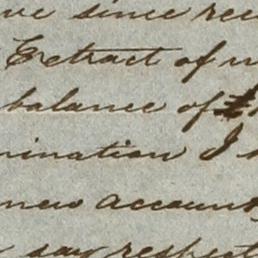 ve since rec
Extract of
balance of
mination I
new account
say respect